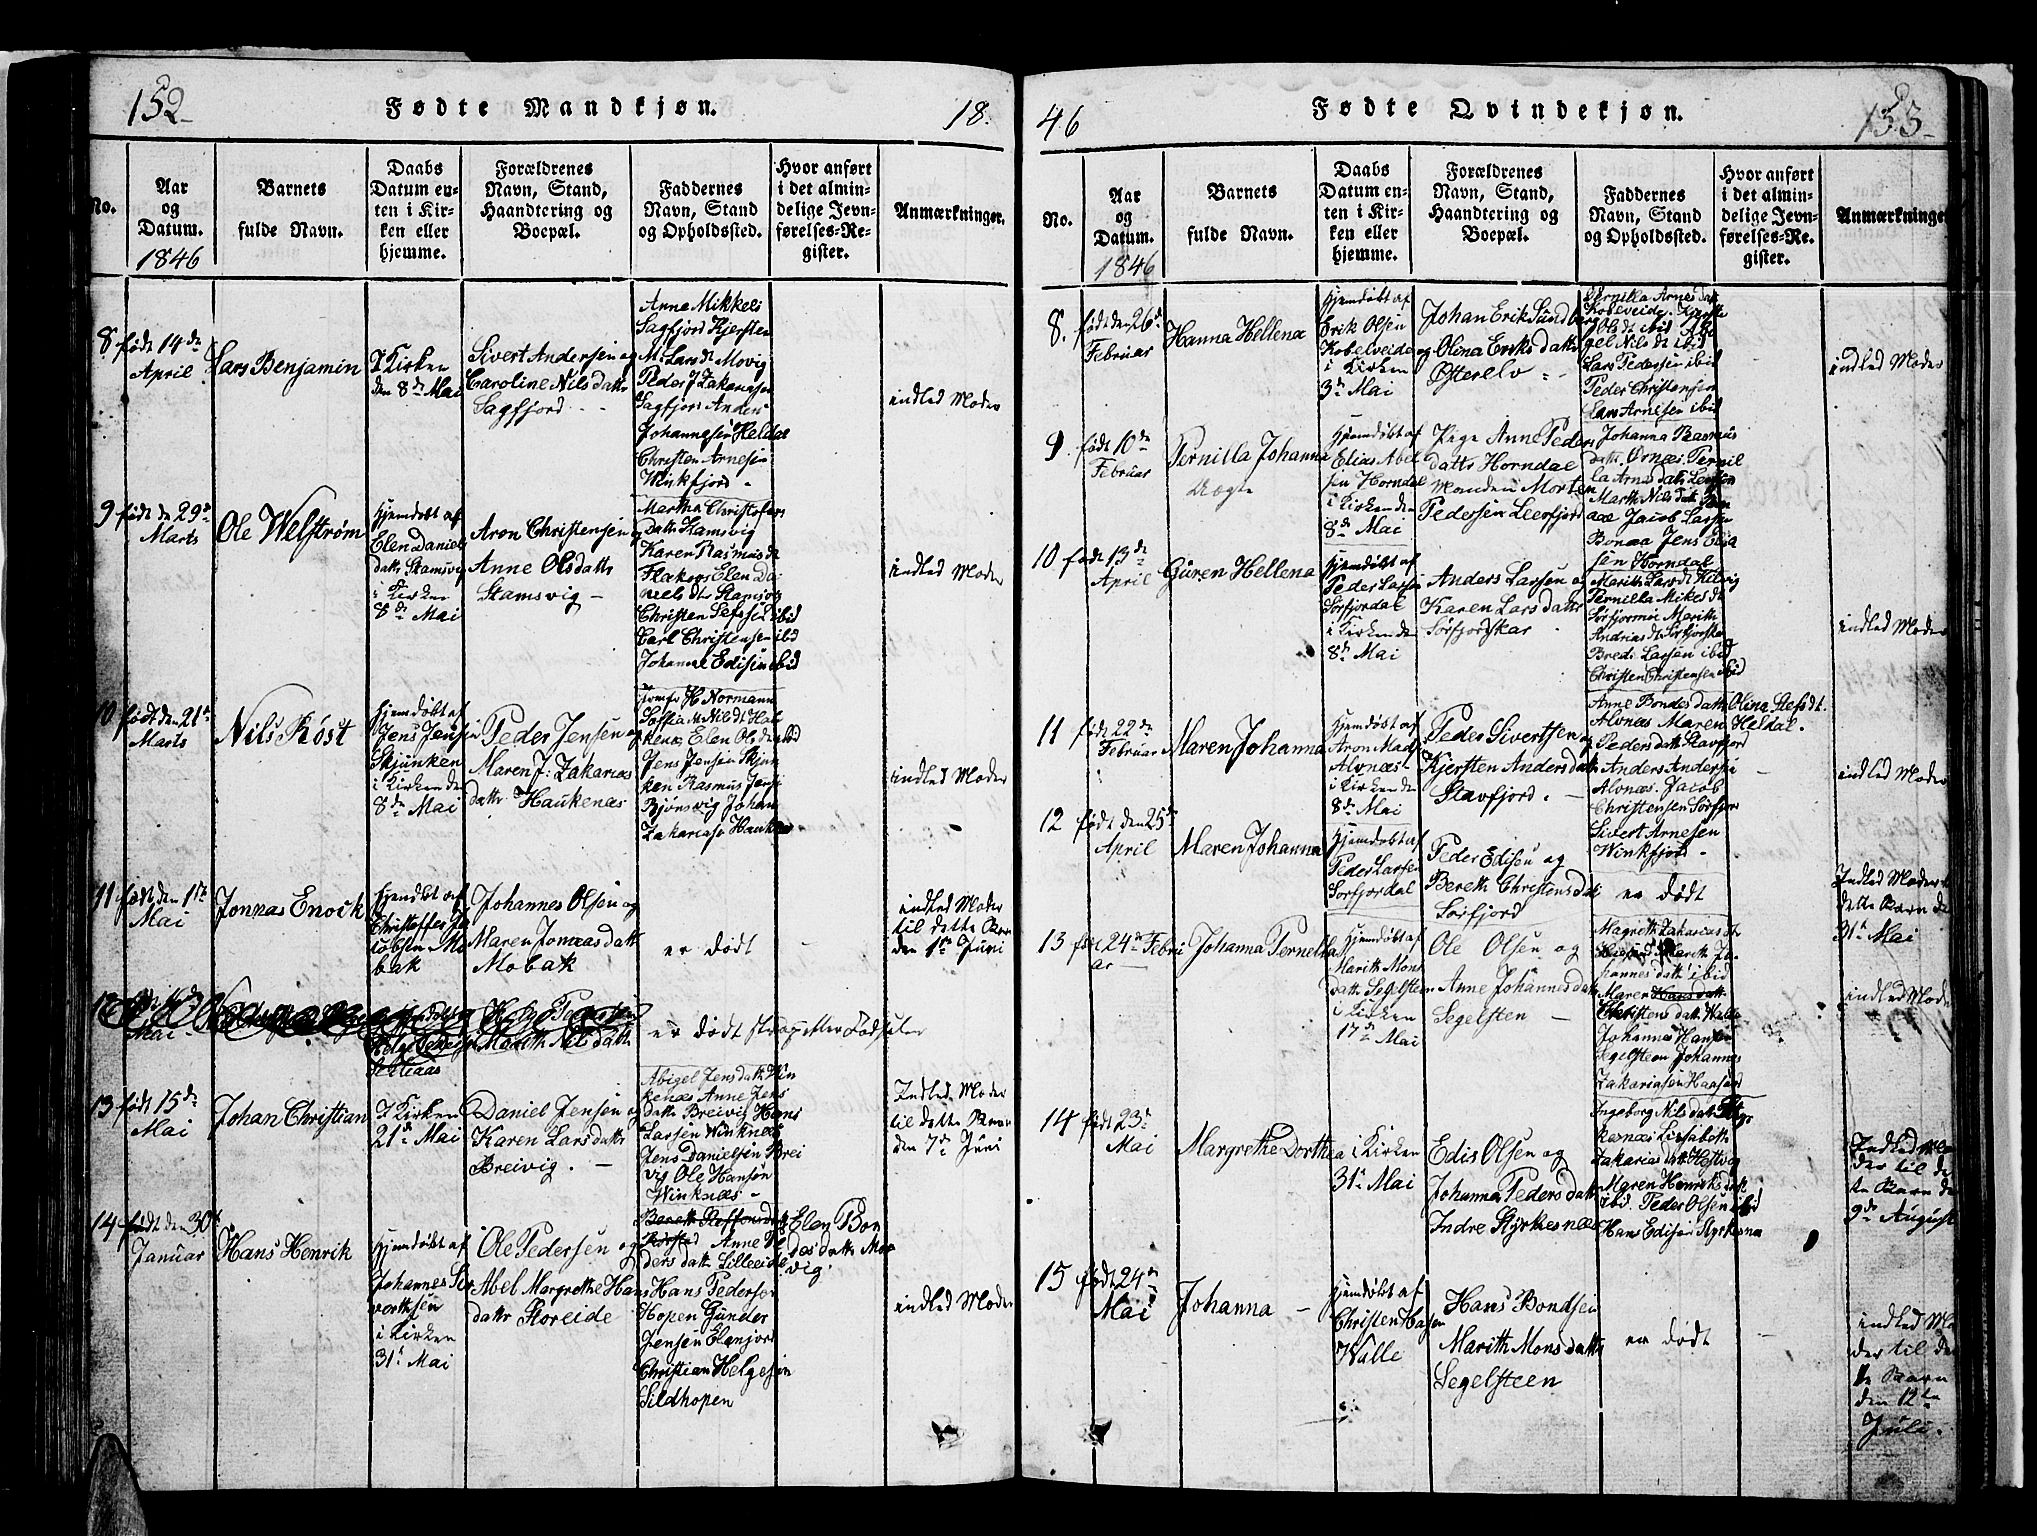 152
Fødte Mandkjøn.
18.
No.
Aar
og
Datum.
1846
Barnets
fulde Navn.
Daabs
Datum en-
ten i Kir-
ken eller
hjemme.
Forældrenes
Navn, Stand,
Haandtering og
Boepæl.
Faddernes
Navn, Stand
og Opholdssted.
Hvor anført
i det almin-
delige Jevn-
førelses-Re-
gister.
Anmærkninger.
8
født 14de
April
Lars Benjamin
I Kirken
den 8de Mai
Sivert Andersen og
Caroline Nils datts
Sagfjord
Anne Mikkels
Sagfjord Kjersten
M. Lars dt Movig
Peder J Zakariasen
Sagfjord Anders
Johannesen Heldal
Christen Arnesen
Winkfjord
indled Moder
9
født de 29de
Marts
Ole Welstrøm
Hjemdøbt af
Elen Daniels
datts Stamsvig
i Kirken
8de Mai
Aron Christensen og
Anne Olsdatts
Stamsvig
Martha Christofers
datts Stamsvig
Karen Rasmus dt
Flakøs Elen Da
niels dt Stamsvig
Christen ibid
Carl Christensen ibid
Johanne Edisen ibid
indled Moder
10
født den 21de
Marts
Nils Røst
Hjemdøbt af
Jens Jensen
Skjunken
i Kirken den
8de Mai
Peder Jensen og
Maren J: Zakarias
datts Haukenæs
Jomfr H Normann
Soffia M Nils dt Hau
kenæs Elen Ols dt ibid
Jens Jensen Skjun
ken Rasmus Jens
Bjønsvig Johan
Zakarias Hauken
indled Moder
11
født den 1te
Mai
Jonnas Enock
Hjemdøbt af
Christoffer Ja
cobsen Mo
bak
Johannes Olsen og
Maren Jonæs datt
Mobak
er dødt
indled Moder
til dette Barn
den 1te Juni
12
Mai
Marith Nils datts
er dødt strax efter Fødselen
13
født 15de
Mai
Johan Christian
I Kirken
21de Mai
Daniel Jensen og
Karen Lars datts
Breivig.
Abigel Jens datts Win
kenæs Anne Jens
datts Breivig Hans
Larsen Winknæs
Jens Danielsen Brei
vig Ole Hansen
Winknæs
Indled Moder
til dette Barn
den 7de Juni
14
født den 30te
Januar
Hans Henrik
Hjemdøbt af
Johannes Si
vertsen
i Kirken
31te Mai
Ole Pedersen og
Abel Margrethe Hans
datts Storeide
Bereth Steffens datt
Anne Pe
ders datt Lilleeide
Hans Pedersen
Hopen Gunder
Jensen Elenjord
Christian Helgesen
Sildhopen
Elen Bon
des datts Mør
vig
indled Moder
46
Fødte Qvindekjøn.
153
No.
Aar
og
Datum.
1846
Barnets
fulde Navn.
Daabs
Datum en-
ten i Kir-
ken eller
hjemme.
Forældrenes
Navn, Stand,
Haandtering og
Boepæl.
Faddernes
Navn, Stand
og Opholdssted.
Hvor anført
i det almin-
delige Jevn-
førelses-Re-
gister.
Anmærkninge
8.
født den 26de
Februar
Hanna Hellena
Hjemdøbt af
Erik Olsen
Kobelveide
i Kirken
3de Mai
Johan Erik Sundberg
og Olina Eriks datts
Østerelv
Pernilla Arnes datt
Kobelveide
Ols dt ibid Abi
gel Nils dt ibid
Lars Pedersen ibid
Peder Christensen
Lars Arnesen ibid
indled Moder
9
født 10de
Februar
Pernilla Johanna
Uægte
Hjemdøbt af
Elias Abel
sen Horndal
i Kirken den
8de Mai
Pige Anne Peders
datts Horndal
Manden Morten
Pedersen Leerfjord
Johanna Rasmus
datts Ørnæs. Pernil
la Arns datts Leerfjord
Marth Nils datt Bon
aae Jacob Larsen
Bonaa Jens Elia
sen Horndal
10
født 13de
April
Guren Hellena
Hjemdøbt af
Peder Larsen
Sørfjordal
i Kirken de
8de Mai
Anders Larsen og
Karen Lars datts
Sørfjordskar
Marith Lars dt Helvig
Pernilla Mikels dt
Sørfjormo Marith
Andrias dt Sørfjorskar
Bredi Larsen ibid
Christen Christensen ibid
indled Moder
11
født 22de
Februar
Maren Johanna
Hjemdøbt af
Aron Mads
Alvnæs
i Kirken den
8de Mai
Peder Sivertsen og
Kjersten Anders datts
Stavfjord.
Anne Bondes datts
Alvnæs Maren
Peders datt Stavfjord
Anders Andersen
Alvnæs. Jacob
Christensen Sørfjor
Sivert Arnesen
Winkfjord
Olina Stefs dt.
Heldal.
indled Moder
12
født den 25de
April
Maren Johanna
Hjemdøbt af
Peder Larsen
Sørfjordal
Peder Edisen og
Bereth Christens datt
Sørfjord
er dødt
Indled Moder til
dette Barn de
31te Mai
13
født 24de Febru
ar
Johanna Pernella
Hjemdøbt af
Marith Mons
datts Segelsteen
i Kirken
17de Mai
Ole Olsen og
Anne Johannes datt
Segelsten
Magreth Zakarias dt
Marith Jo
hannes datt ibid
Maren Hans datt
Christens datt Walle
Johannes Hansen
Segelsteen Johannes
Zakariasen Haafjord
indled Mode
14
født 23de
Mai
Margrethe Dorthea
i Kirken
31te Mai
Edis Olsen og
Johanna Peders datt
Indre Styrkesnæs
Ingeborg Nils datt Styr
kesnæs Lisabeth
Zakarias datt Hestvig
Maren Henriks datt
ibid. Peder Olsen ibid
Hans Edisen Styrkesnæ
Indled Mo
der til de
te Barn de
9de August
15
født 24de
Mai
Johanna
Hjemdøbt af
Christen Hansen
Walle
Hans Bondsen
Marith Mons datts
Segelsteen
er dødt
indled Mo
der til det
te Barn
den 12te
Juli.